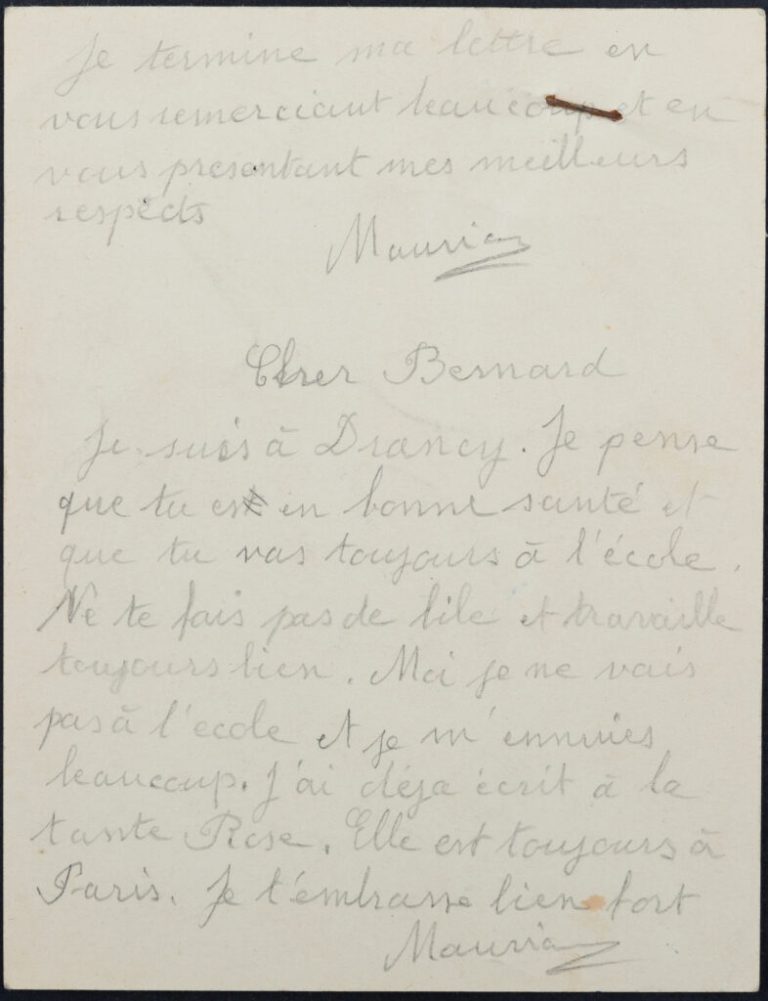 Je termine ma lettre en
vous remerciant beaucoup et en
vous presentant mes meilleurs
respects
Maurice
Cher Bernard
Je suis à Drancy. Je pense
que tu es en bonne santé et
que tu vas toujours à l'école.
Ne te fais pas de bile et travaille
toujours bien. Moi je ne vais
pas à l'ecole et je m'ennuies
beaucoup. J'ai déja écrit à la
tante Rose. Elle est toujours à
Paris. Je t'embrasse bien fort
Maurice